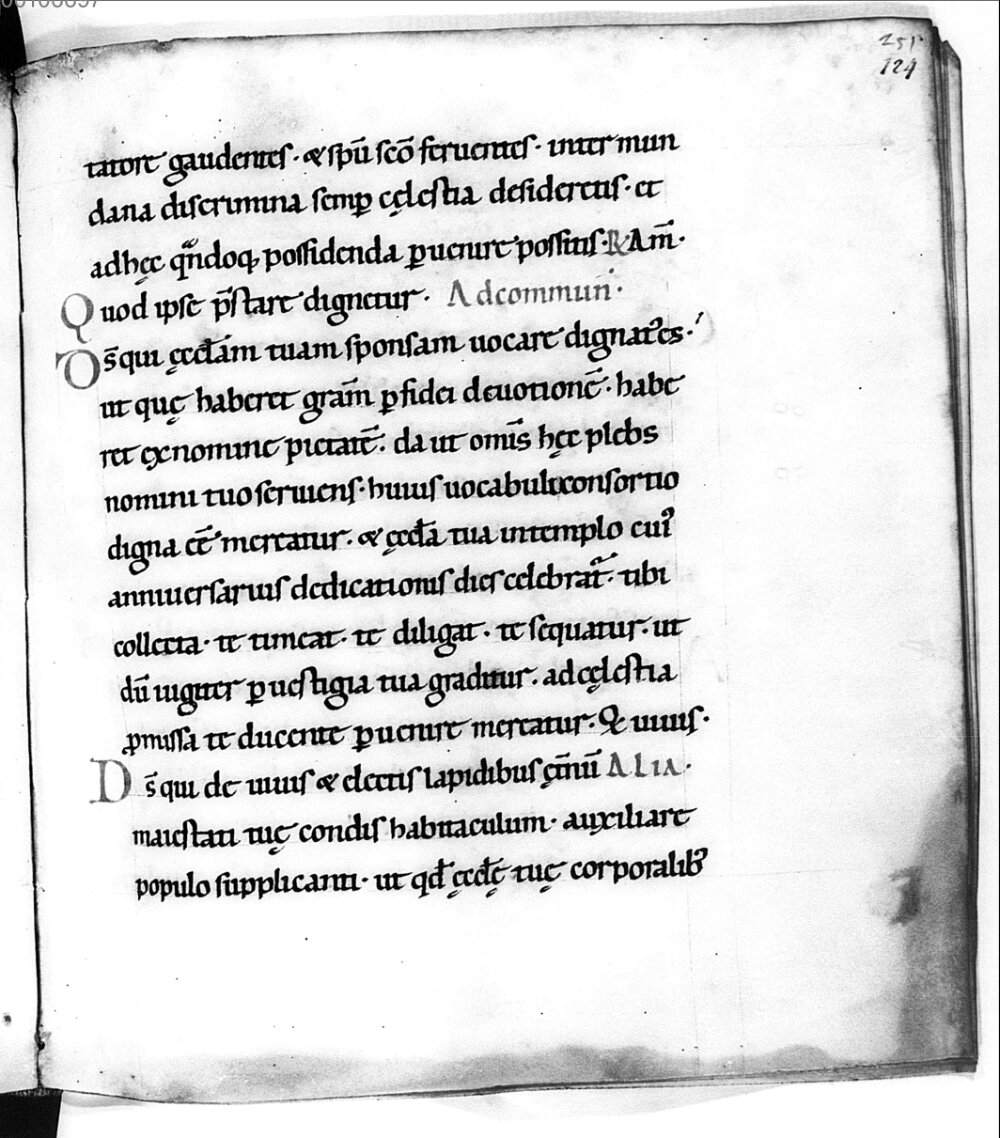 251
124
tatore gaudentes · & spū scō feruentes · inter mun
dana discrimina semp cęlestia desideretis · et
adhęc qn̄doq; possidenda puenire possitis · R Am̄ ·
Quod ipse p̄stare dignetur · Ad commun̄ ·
Ds̄ qui ęccl̄am tuam sponsam uocare dignatꝰes ·
ut quę haberet gram̄ p fidei deuotionē · habe
ret ex nomine pietatē · da ut omīs hęc plebs
nomini tuo seruiens · huius uocabuli consortio
digna eē mereatur · & ęccl̄a tua in templo cuiꝰ
anniuersarius dedicationis dies celebratᷣ · tibi
collecta · te timeat · te diligat · te sequatur · ut
dū iugiter p uestigia tua graditur · ad cęlestia
ꝓmissa te ducente puenire mereatur · Q uiuis ·
Ds̄ qui de uiuis & electis lapidibus ęt̄nū ALIA ·
maiestati tuę condis habitaculum · auxiliare
populo supplicanti · ut qd̄ ęccl̄ę tuę corporalibꝰ